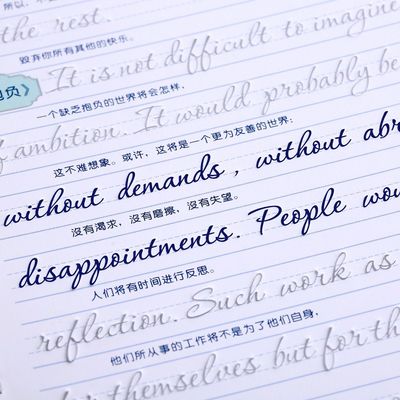 the rest.
毁弃你所有其他的快乐。
It is not difficult to imagine
抱负》
一个缺乏抱负的世界将会怎样,
ambition. It would probably be
这不难想象。或许，这将是一个更为友善的世界:
without demands, without
沒有渴求，沒有磨擦，沒有失望。
disappointments. People
人们将有时间进行反思。
reflection. Such work as
他们所从事的工作将不是为了他们自身,
themselves but for